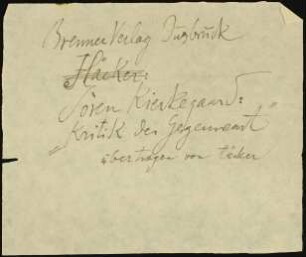 Brenner Verlag Insbruck
Häcker:
Sören Kierkegaard:
„Kritik der Gegenwart"
übertragen von Häcker